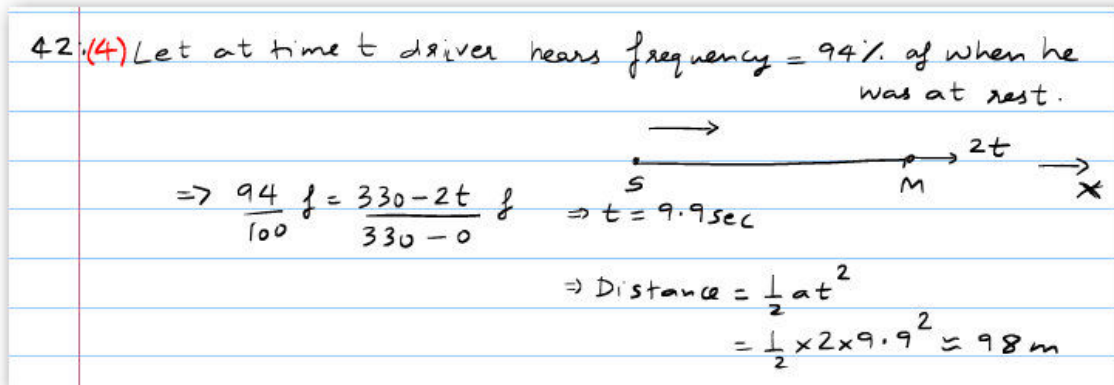 42.(4) Let at time t driver hears frequency = 94% of when he
was at rest.
2t
S M X
=> 94/100 f = 330-2t/330-0 f => t = 9.9 sec
=> Distance = 1/2 at²
= 1/2 x 2 x 9.9² ≈ 98 m